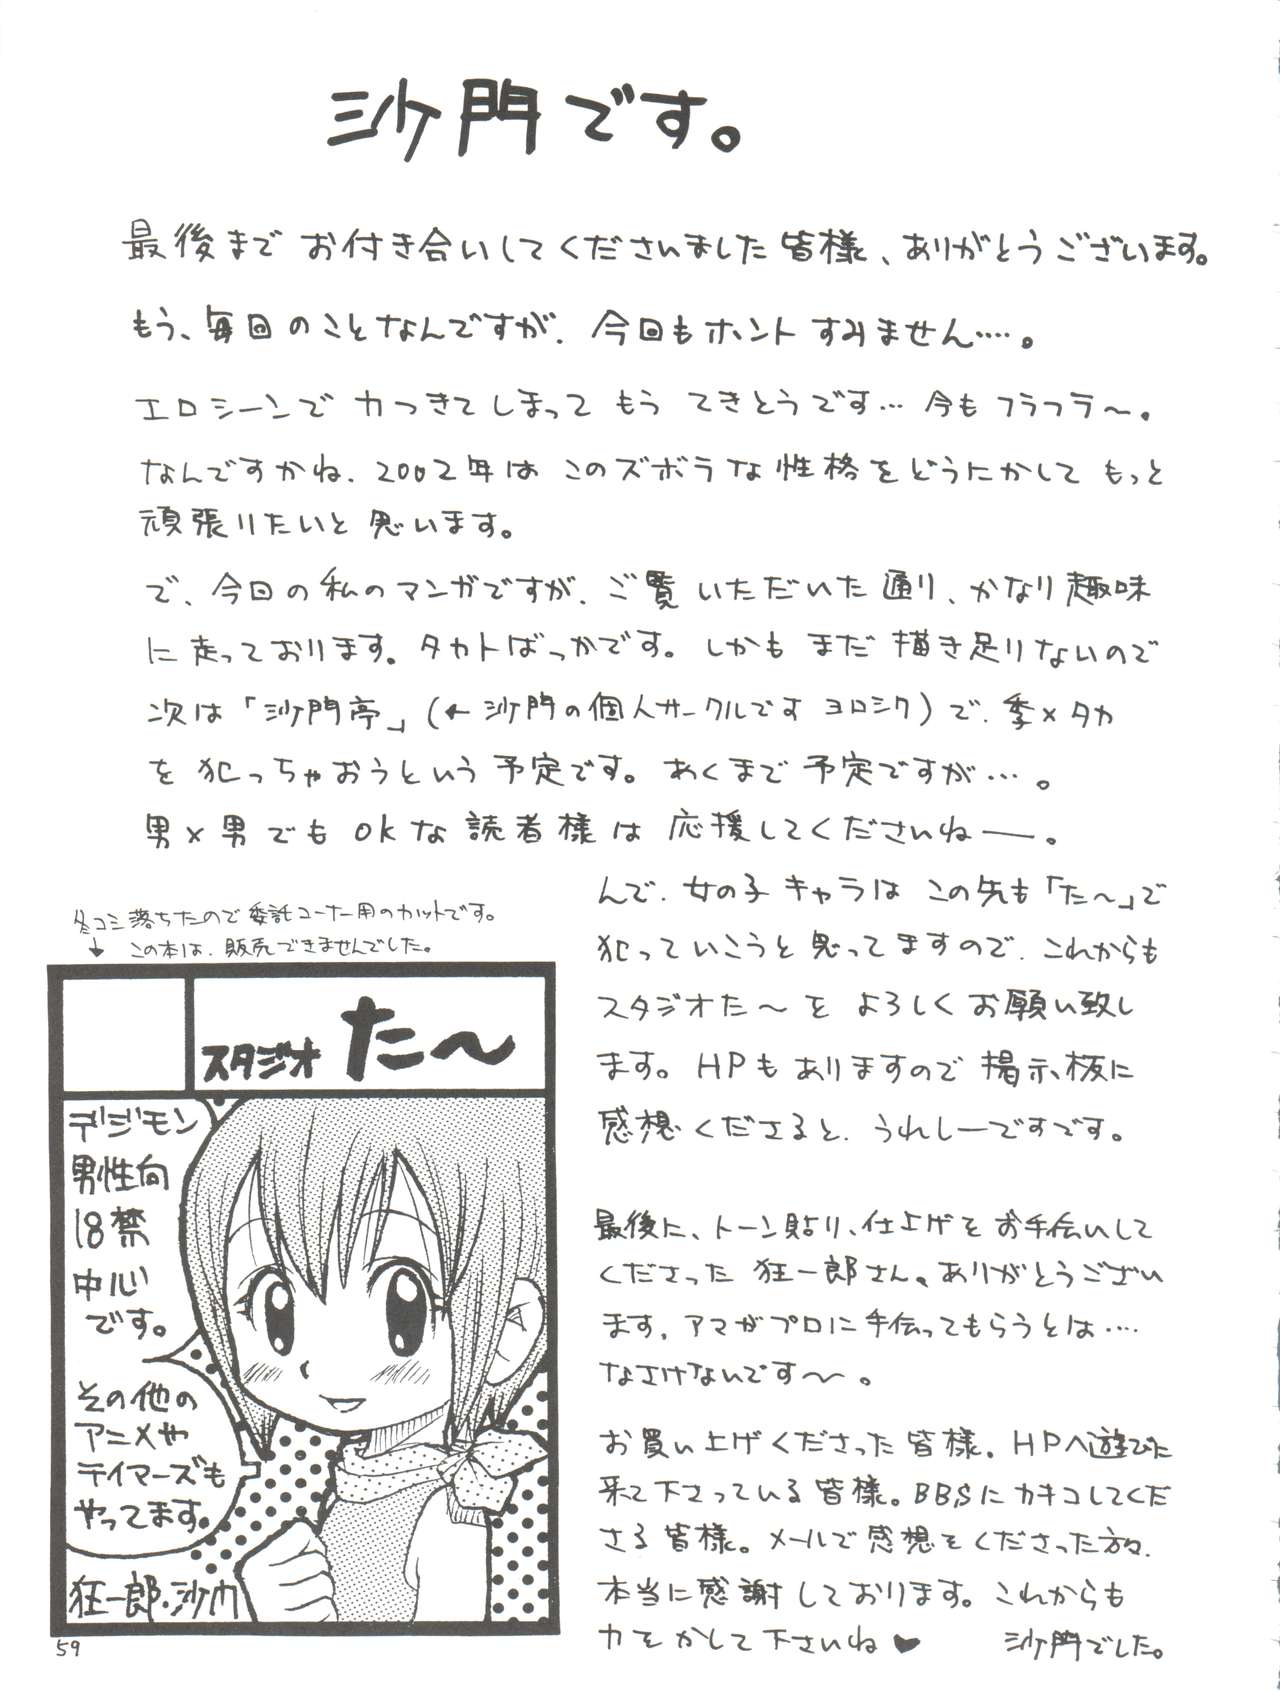 沙門です。
最後まで お付き合いしてくださいました 皆様、ありがとうございます。
もう、毎回のことなんですが、今回もホント すみません……。
エロシーンで 力つきてしまって もう てきとうです… 今も フラフラ〜。
なんですかね、2002年は このズボラな性格を どうにかして もっと
頑張りたいと 思います。
で、今回の 私のマンガですが、ご覧 いただいた 通り、かなり趣味
に 走っております。タカトばっかです。しかも まだ 描き足りないので
次は「沙門亭」(←沙門の個人サークルです ヨロシク)で、季×タカ
を 犯っちゃおうという 予定です。あくまで 予定ですが…。
男×男でも OKな 読者様は 応援してくださいねー。
んで、女の子 キャラは この先も「た〜」で
犯っていこうと 思ってますので、これからも
スタジオた〜を よろしく お願い致し
ます。HPも ありますので 掲示板に
感想 くださると、うれしーですです。
最後に、トーン貼り、仕上げを お手伝いして
くださった 狂一郎さん。ありがとうござい
ます。アマが プロに 手伝ってもらうとは‥‥
なさけないです〜。
お買い上げくださった 皆様。HPへ遊びに
来て下さっている 皆様。BBSにカキコしてくだ
さる 皆様。メールで 感想をくださった方々、
本当に 感謝しております。これからも
力を かして 下さいね♥ 沙門でした。
冬コミ落ちたので 委託コーナー用のカットです。
↓ この本は、販売できませんでした。
スタジオ た〜
デジモン
男性向
18禁
中心
です。
その他の
アニメや
テイマーズも
やってます。
狂一郎・沙門
59